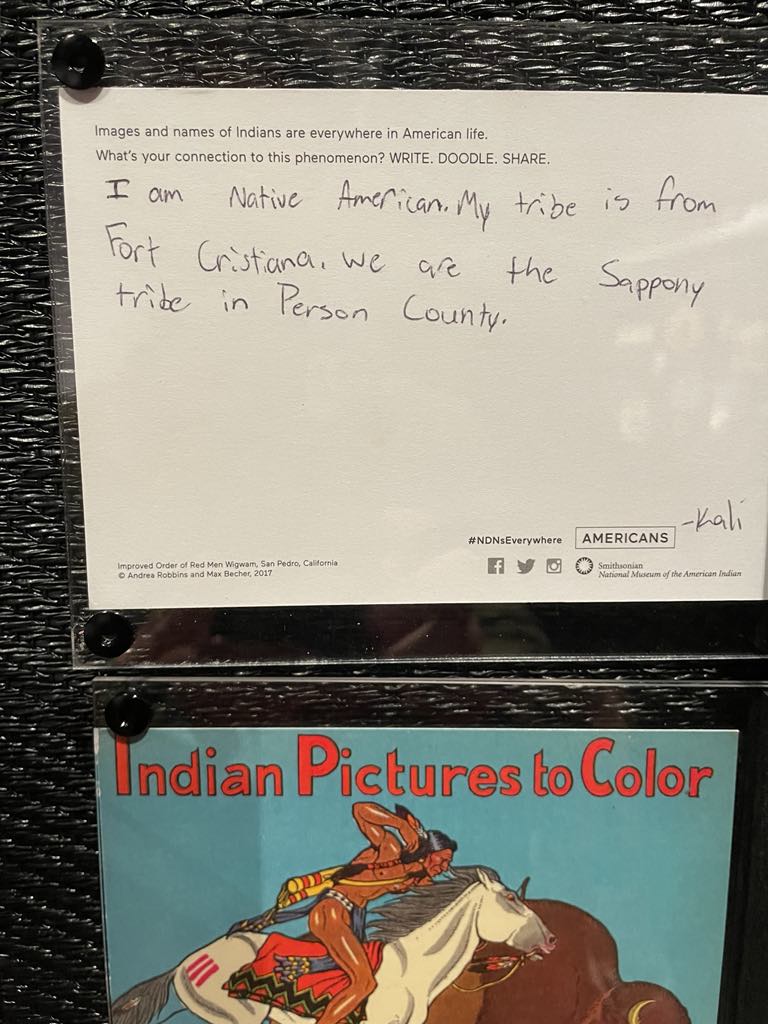 Images and names of Indians are everywhere in American life.
What's your connection to this phenomenon? WRITE. DOODLE. SHARE.
I am Native American. My tribe is from
Fort Cristiana. we are the Sappony
tribe in Person County.
-Kali
#NDNsEverywhere AMERICANS
Improved Order of Red Men Wigwam, San Pedro, California
© Andrea Robbins and Max Becher, 2017
Smithsonian
National Museum of the American Indian
Indian Pictures to Color